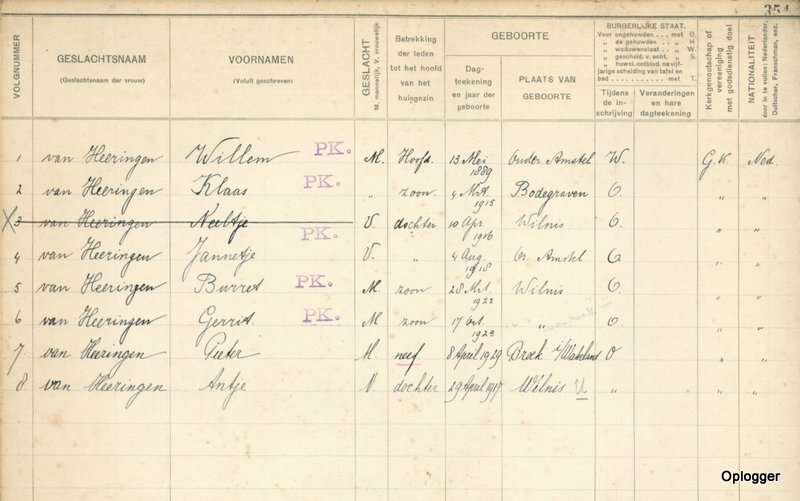 354
VOLGNUMMER
GESLACHTSNAAM
(Geslachtsnaam der vrouw)
VOORNAMEN
(Voluit geschreven)
GESLACHT
M. mannelijk, V. vrouwelijk
Betrekking
der leden
tot het hoofd
van het
huisgezin
GEBOORTE
Dag-
teekening
en jaar der
geboorte
PLAATS VAN
GEBOORTE
BURGERLIJKE STAAT.
Voor ongehuwden . . . met O.
„ de gehuwden . . . „ H
„ weduwenstaat . . „ W.
„ gescheid. v. echt. „ S.
„ huwel. ontbind. na vijf-
jarige scheiding van tafel en
bed . . . . . . . . . . met T.
Tijdens
de in-
schrijving
Veranderingen
en hare
dagteekening
Kerkgenootschap of
vereeniging
met godsdienstig doel
NATIONALITEIT
door in te vullen: Nederlander,
Duitscher, Franschman, enz.
1 van Heeringen Willem PK. M. Hoofd. 13 Mei 1889 Ouder Amstel W. G.K. Ned.
2 van Heeringen Klaas PK. „ zoon. 4 Mrt. 1915 Bodegraven O. „ „
X 3 van Heeringen Neeltje V. dochter 10 Apr. 1916 Wilnis O. „ „
4 van Heeringen Jannetje PK. V. „ 4 Aug. 1918 Or. Amstel O „ „
5 van Heeringen Burret PK. M. zoon 28 Mrt. 1922 Wilnis O. „ „
6 van Heeringen Gerrit. PK. M zoon 17 Oct. 1923 „ O. „ „
7 van Heeringen Pieter M. neef 8 April 1929 Broek i/Waterland O „ „
8 van Heeringen Antje V. dochter 29 April 1917 Wilnis U „ „ „
Oplogger